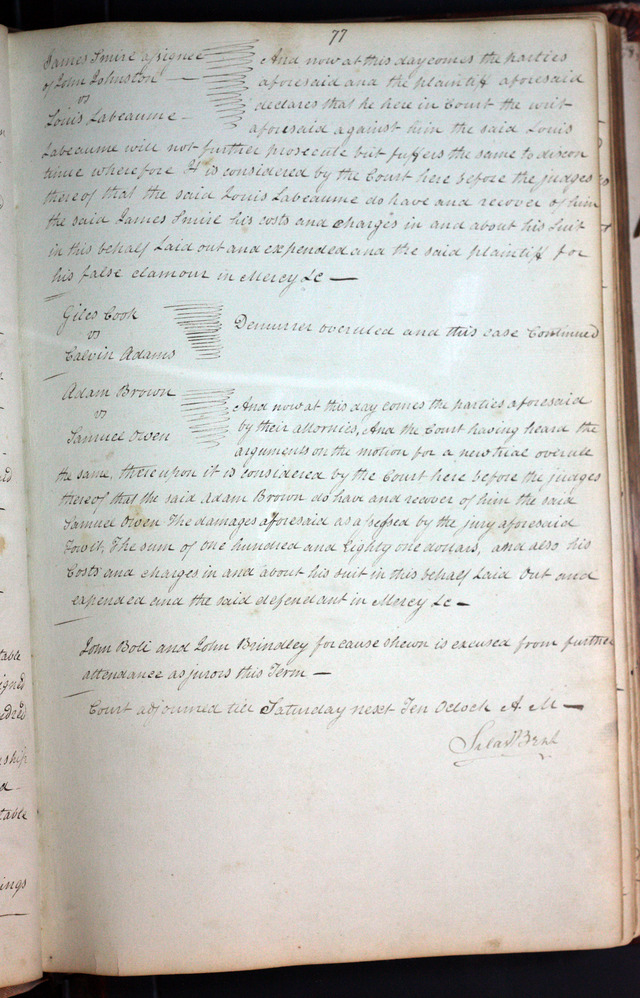 77
James Smire assignee
of John Johnston —
vs
Louis Labeaume —
And now at this day comes the parties
aforesaid and the plaintiff aforesaid
declares that he here in Court the writ
aforesaid against him the said Louis
Labeaume will not further prosecute but suffers the same to discon
tinue wherefore It is considered by the Court here before the judges
thereof that the said Louis Labeaume do have and recover of him
the said James Smire his costs and charges in and about his suit
in this behalf Laid out and expended and the said plaintiff for
his false clamour in Mercy &c —
Giles Cook
vs
Calvin Adams
Demurrer overuled and this case Continued
Adam Brown
vs
Samuel Owen
And now at this day comes the parties aforesaid
by their attornies, And the Court having heard the
arguments on the motion for a new trial overule
the same, thereupon it is considered by the Court here before the judges
thereof that the said Adam Brown do have and recover of him the said
Samuel Owen The damages aforesaid as assessed by the jury aforesaid
Towit, The sum of one hundred and Eighty one dollars, and also his
Costs and charges in and about his suit in this behalf Laid Out and
expended and the said defendant in Mercy &c —
John Boli and John Brindley for cause shewn is excused from further
attendance as jurors this Term —
Court adjourned till Saturday next Ten Oclock A. M —
Silas Bent
table
igned
ndred
a
table
ings